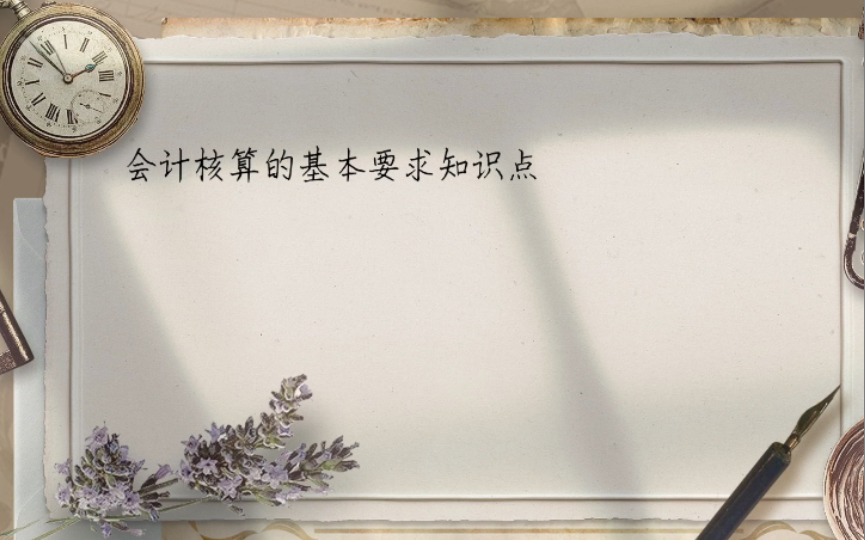 会计核算的基本要求知识点